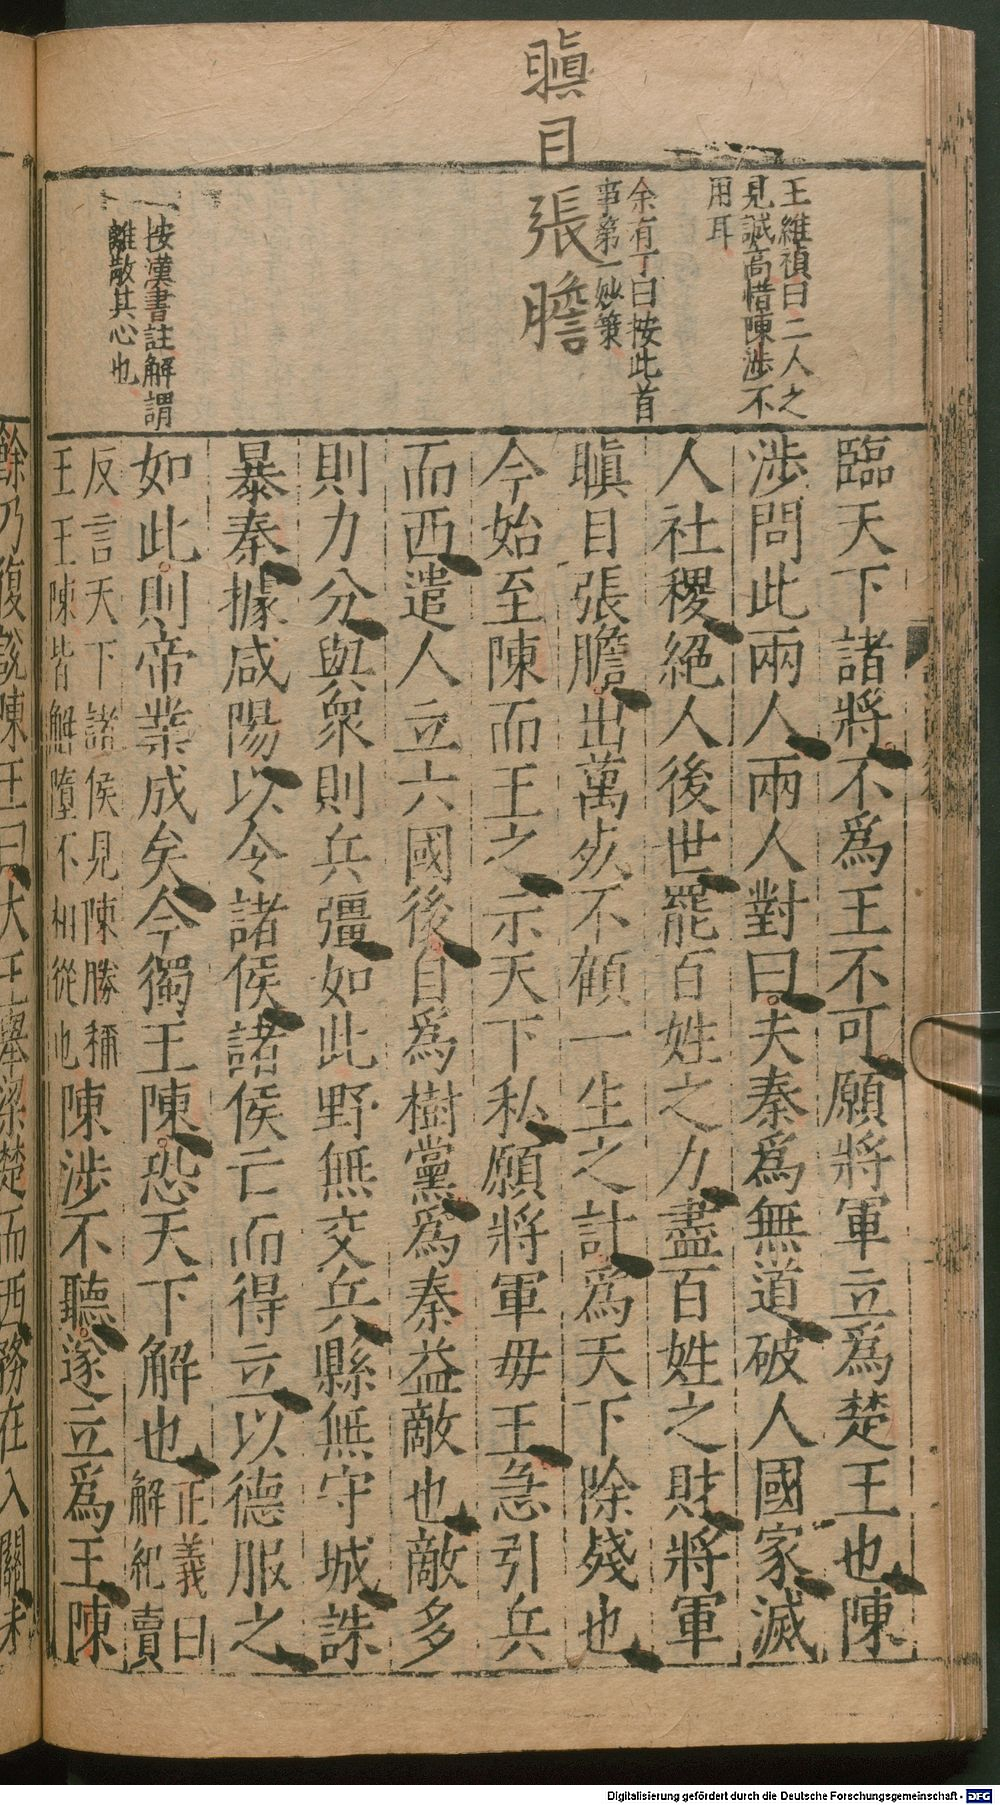 瞋目
張膽
王維禎曰二人之
見誠高惜陳涉不
用耳
余有丁曰按此首
事第一妙策
按漢書註解謂
離散其心也
臨天下諸將不爲王不可願將軍立爲楚王也陳
涉問此兩人兩人對曰夫秦爲無道破人國家滅
人社稷絕人後世罷百姓之力盡百姓之財將軍
瞋目張膽出萬死不顧一生之計爲天下除殘也
今始至陳而王之示天下私願將軍毋王急引兵
而西遣人立六國後自爲樹黨爲秦益敵也敵多
則力分與衆則兵彊如此野無交兵縣無守城誅
暴秦據咸陽以令諸侯諸侯亡而得立以德服之
如此則帝業成矣今獨王陳恐天下解也
正義曰
解紀賣
反言天下諸侯見陳勝稱
王王陳皆解墮不相從也
陳涉不聽遂立爲王陳
餘乃復說陳王曰大王舉梁楚而西務在入關未
Digitalisierung gefördert durch die Deutsche Forschungsgemeinschaft - DFG